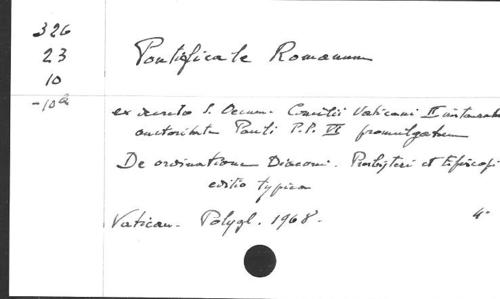 326
23
10
-10a
Pontificale Romanum
ex decreto S. Oecum. Concilii Vaticani II instaurat
auctoritate Pauli P.P. VI promulgatum
De ordinatione Diaconi. Presbyteri et Episcopi
editio typica
Vatican. Polygl. 1968.
4°